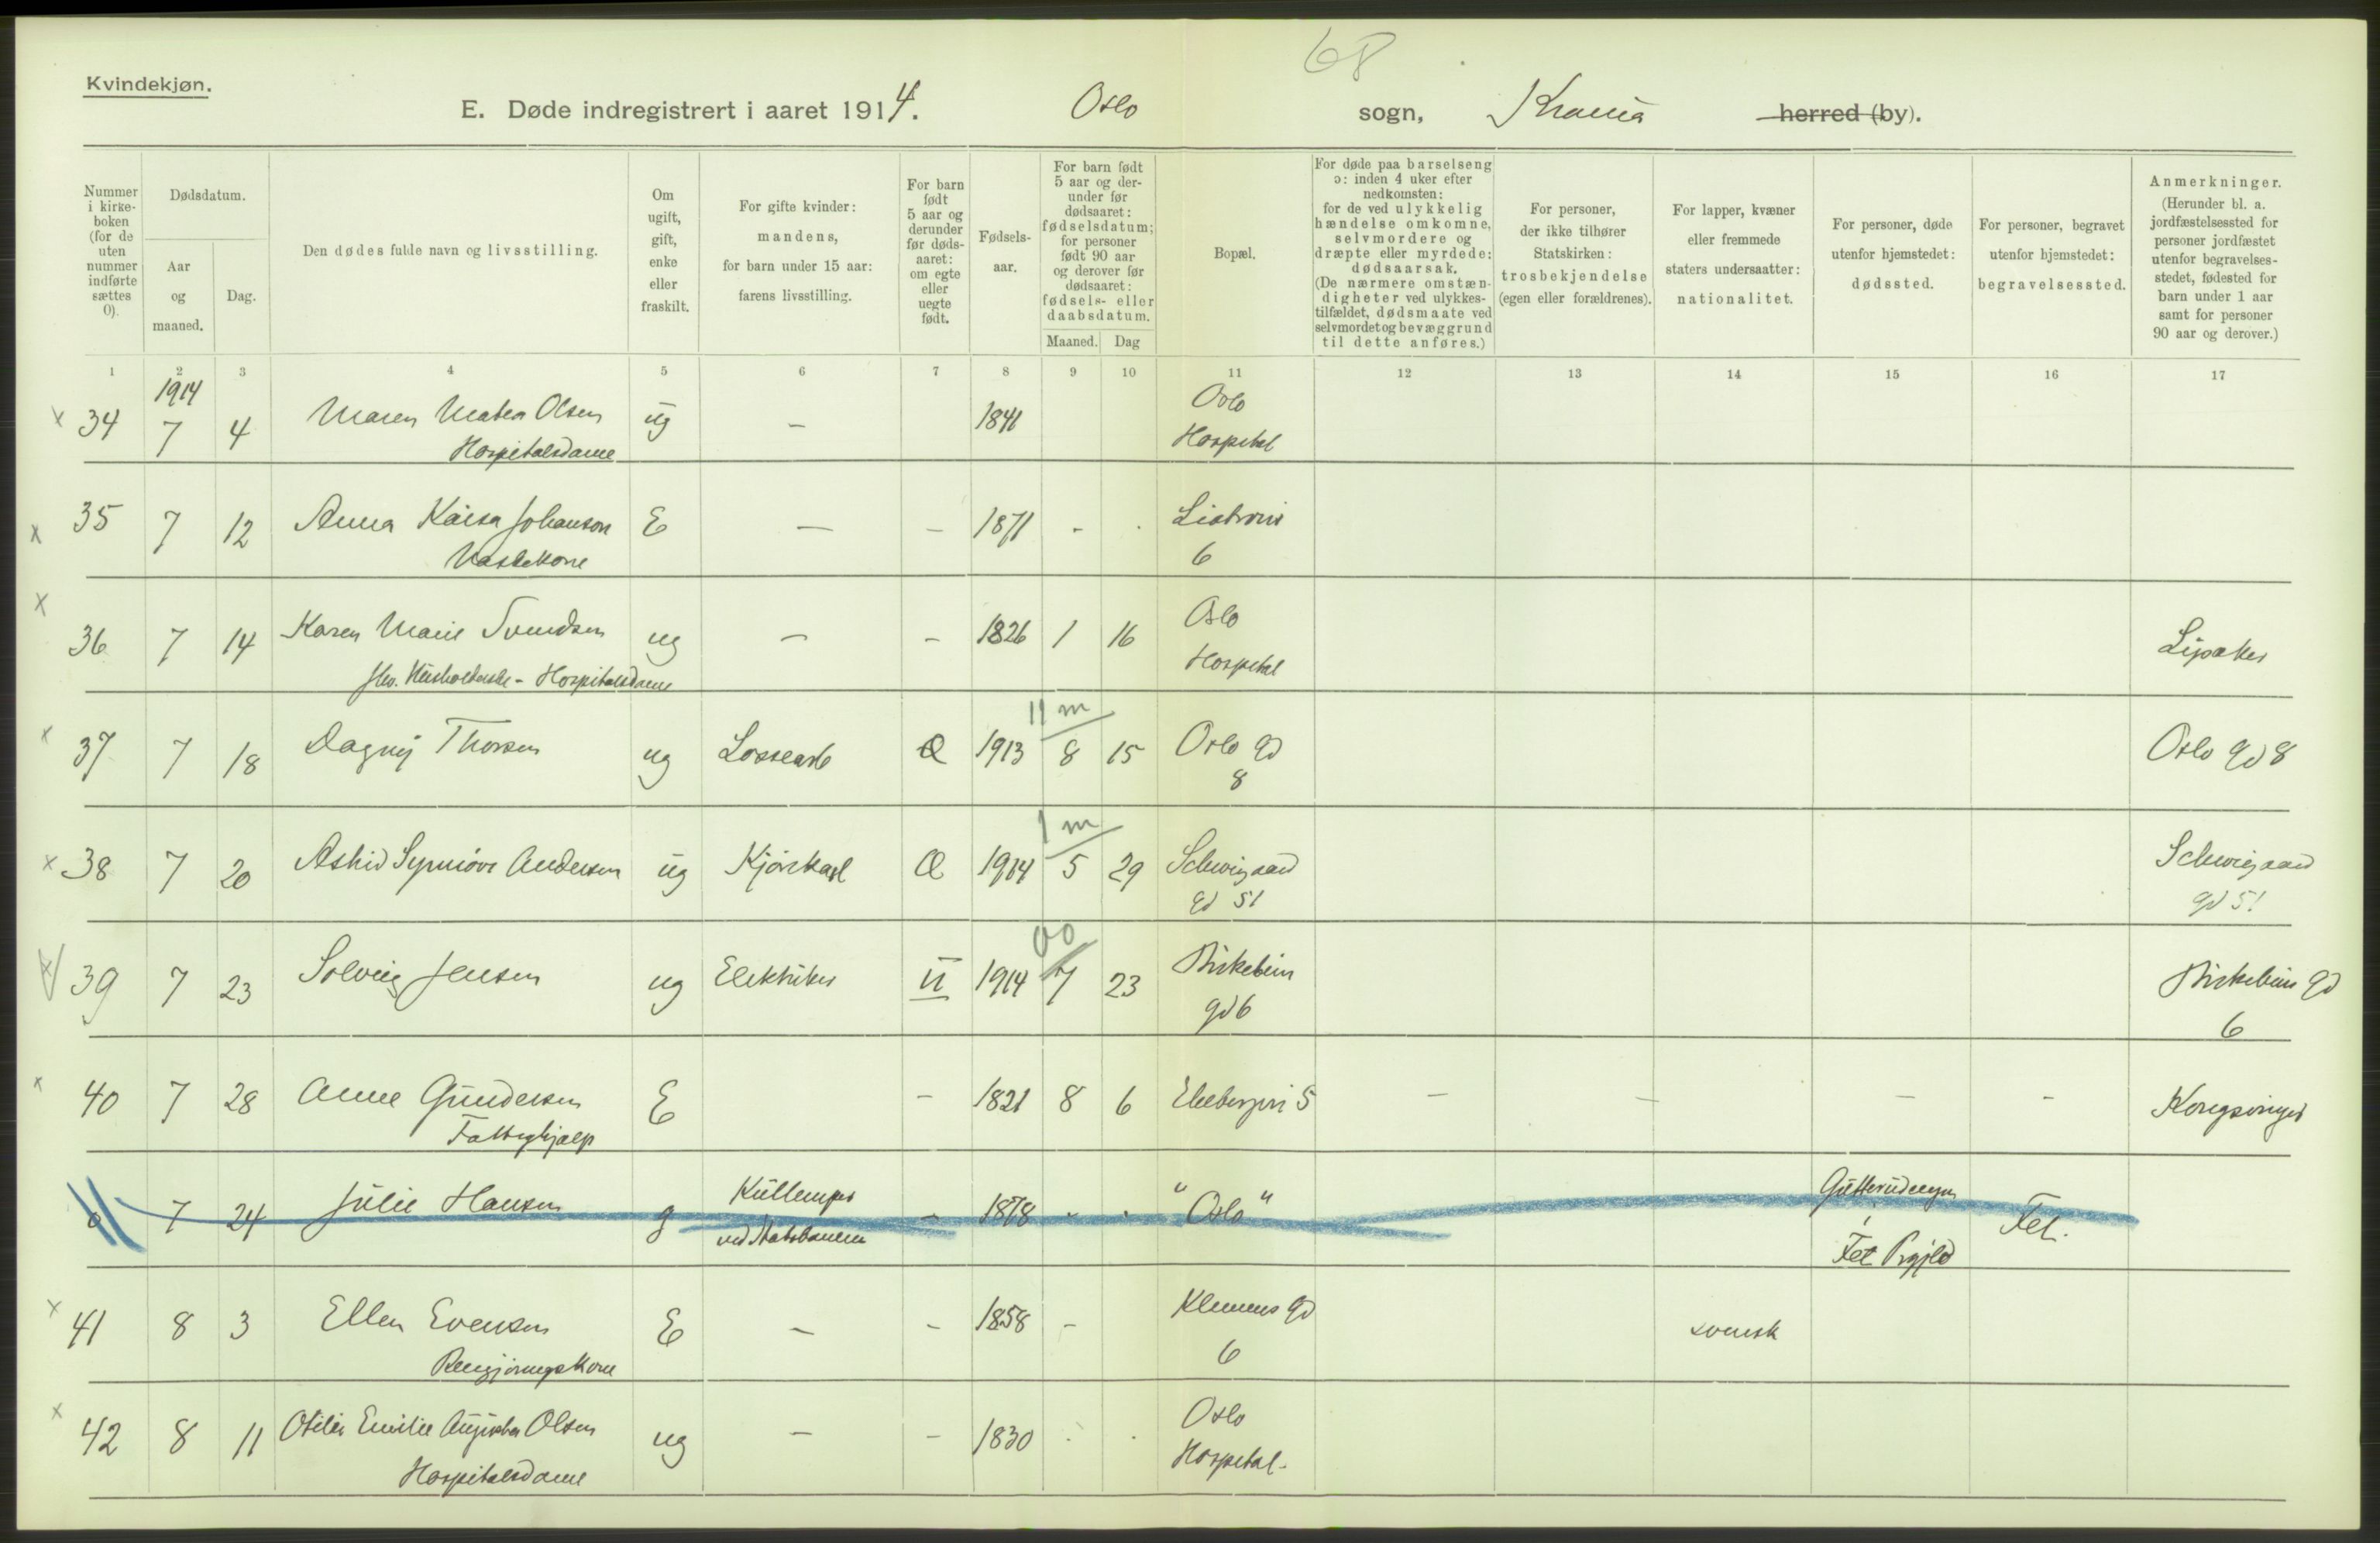 68
Kvindekjøn.
E. Døde indregistrert i aaret 1914. Oslo sogn, Krania herred (by).
Nummer i kirke-boken (for de uten nummer indførte sættes 0).
Dødsdatum.
Aar og maaned.
Dag.
Den dødes fulde navn og livsstilling.
Om ugift, gift, enke eller fraskilt.
For gifte kvinder: mandens, for barn under 15 aar: farens livsstilling.
For barn født 5 aar og derunder før døds-aaret: om egte eller uegte født.
Fødsels-aar.
For barn født 5 aar og der-under før dødsaaret: fødselsdatum; for personer født 90 aar og derover før dødsaaret: fødsels- eller daabsdatum.
Maaned. Dag
Bopæl.
For døde paa barselseng ɔ: inden 4 uker efter nedkomsten: for de ved ulykkelig hændelse omkomne, selvmordere og dræpte eller myrdede: dødsaarsak. (De nærmere omstæn-digheter ved ulykkes-tilfældet, dødsmaate ved selvmordet og bevæggrund til dette anføres.)
For personer, der ikke tilhører Statskirken: trosbekjendelse (egen eller forældrenes).
For lapper, kvæner eller fremmede staters undersaatter: nationalitet.
For personer, døde utenfor hjemstedet: dødssted.
For personer, begravet utenfor hjemstedet: begravelsessted.
Anmerkninger. (Herunder bl. a. jordfæstelsessted for personer jordfæstet utenfor begravelses-stedet, fødested for barn under 1 aar samt for personer 90 aar og derover.)
1 2 3 4 5 6 7 8 9 10 11 12 13 14 15 16 17
1914
x 34 7 4 Maren Mathea Olsen ug – 1841 Oslo
Hospitalsdame Hospital
x 35 7 12 Anna Kaisa Johanson E – – 1871 - .
Vaskekone 6
x 36 7 14 Karen Marie Svendsen ug – – 1826 1 16 Oslo
fhv. Husholderske - Hospitalsdame Hospital
11 m
x 37 7 18 Dagny Thorsen ug Lossearb Æ 1913 8 15 Oslo gd Oslo gd 8
8
1 m
x 38 7 20 Astrid Synnöve Andersen ug Kjørekarl Æ 1914 5 29 Schweigaard Schweigaard
gd 51 gd 51
00
x 39 7 23 Solveig Jensen ug Elektriker U 1914 7 23 Birkebein Birkebein gd
gd 6 6
x 40 7 28 Anne Gundersen E - 1821 8 6 Ekebergvei 5 – – – - Kongsvinger
Fattighjælp
0 7 24 Julie Hansen g Kullemper - 1878 - . "Oslo" Fet.
ved Statsbanerne Fet Prgjld
x 41 8 3 Ellen Evensen E – - 1858 - Klemens gd svensk
Rengjøringskone 6
x 42 8 11 Otilie Emilie Augusta Olsen ug – – 1830 . . Oslo
Hospitalsdame Hospital.